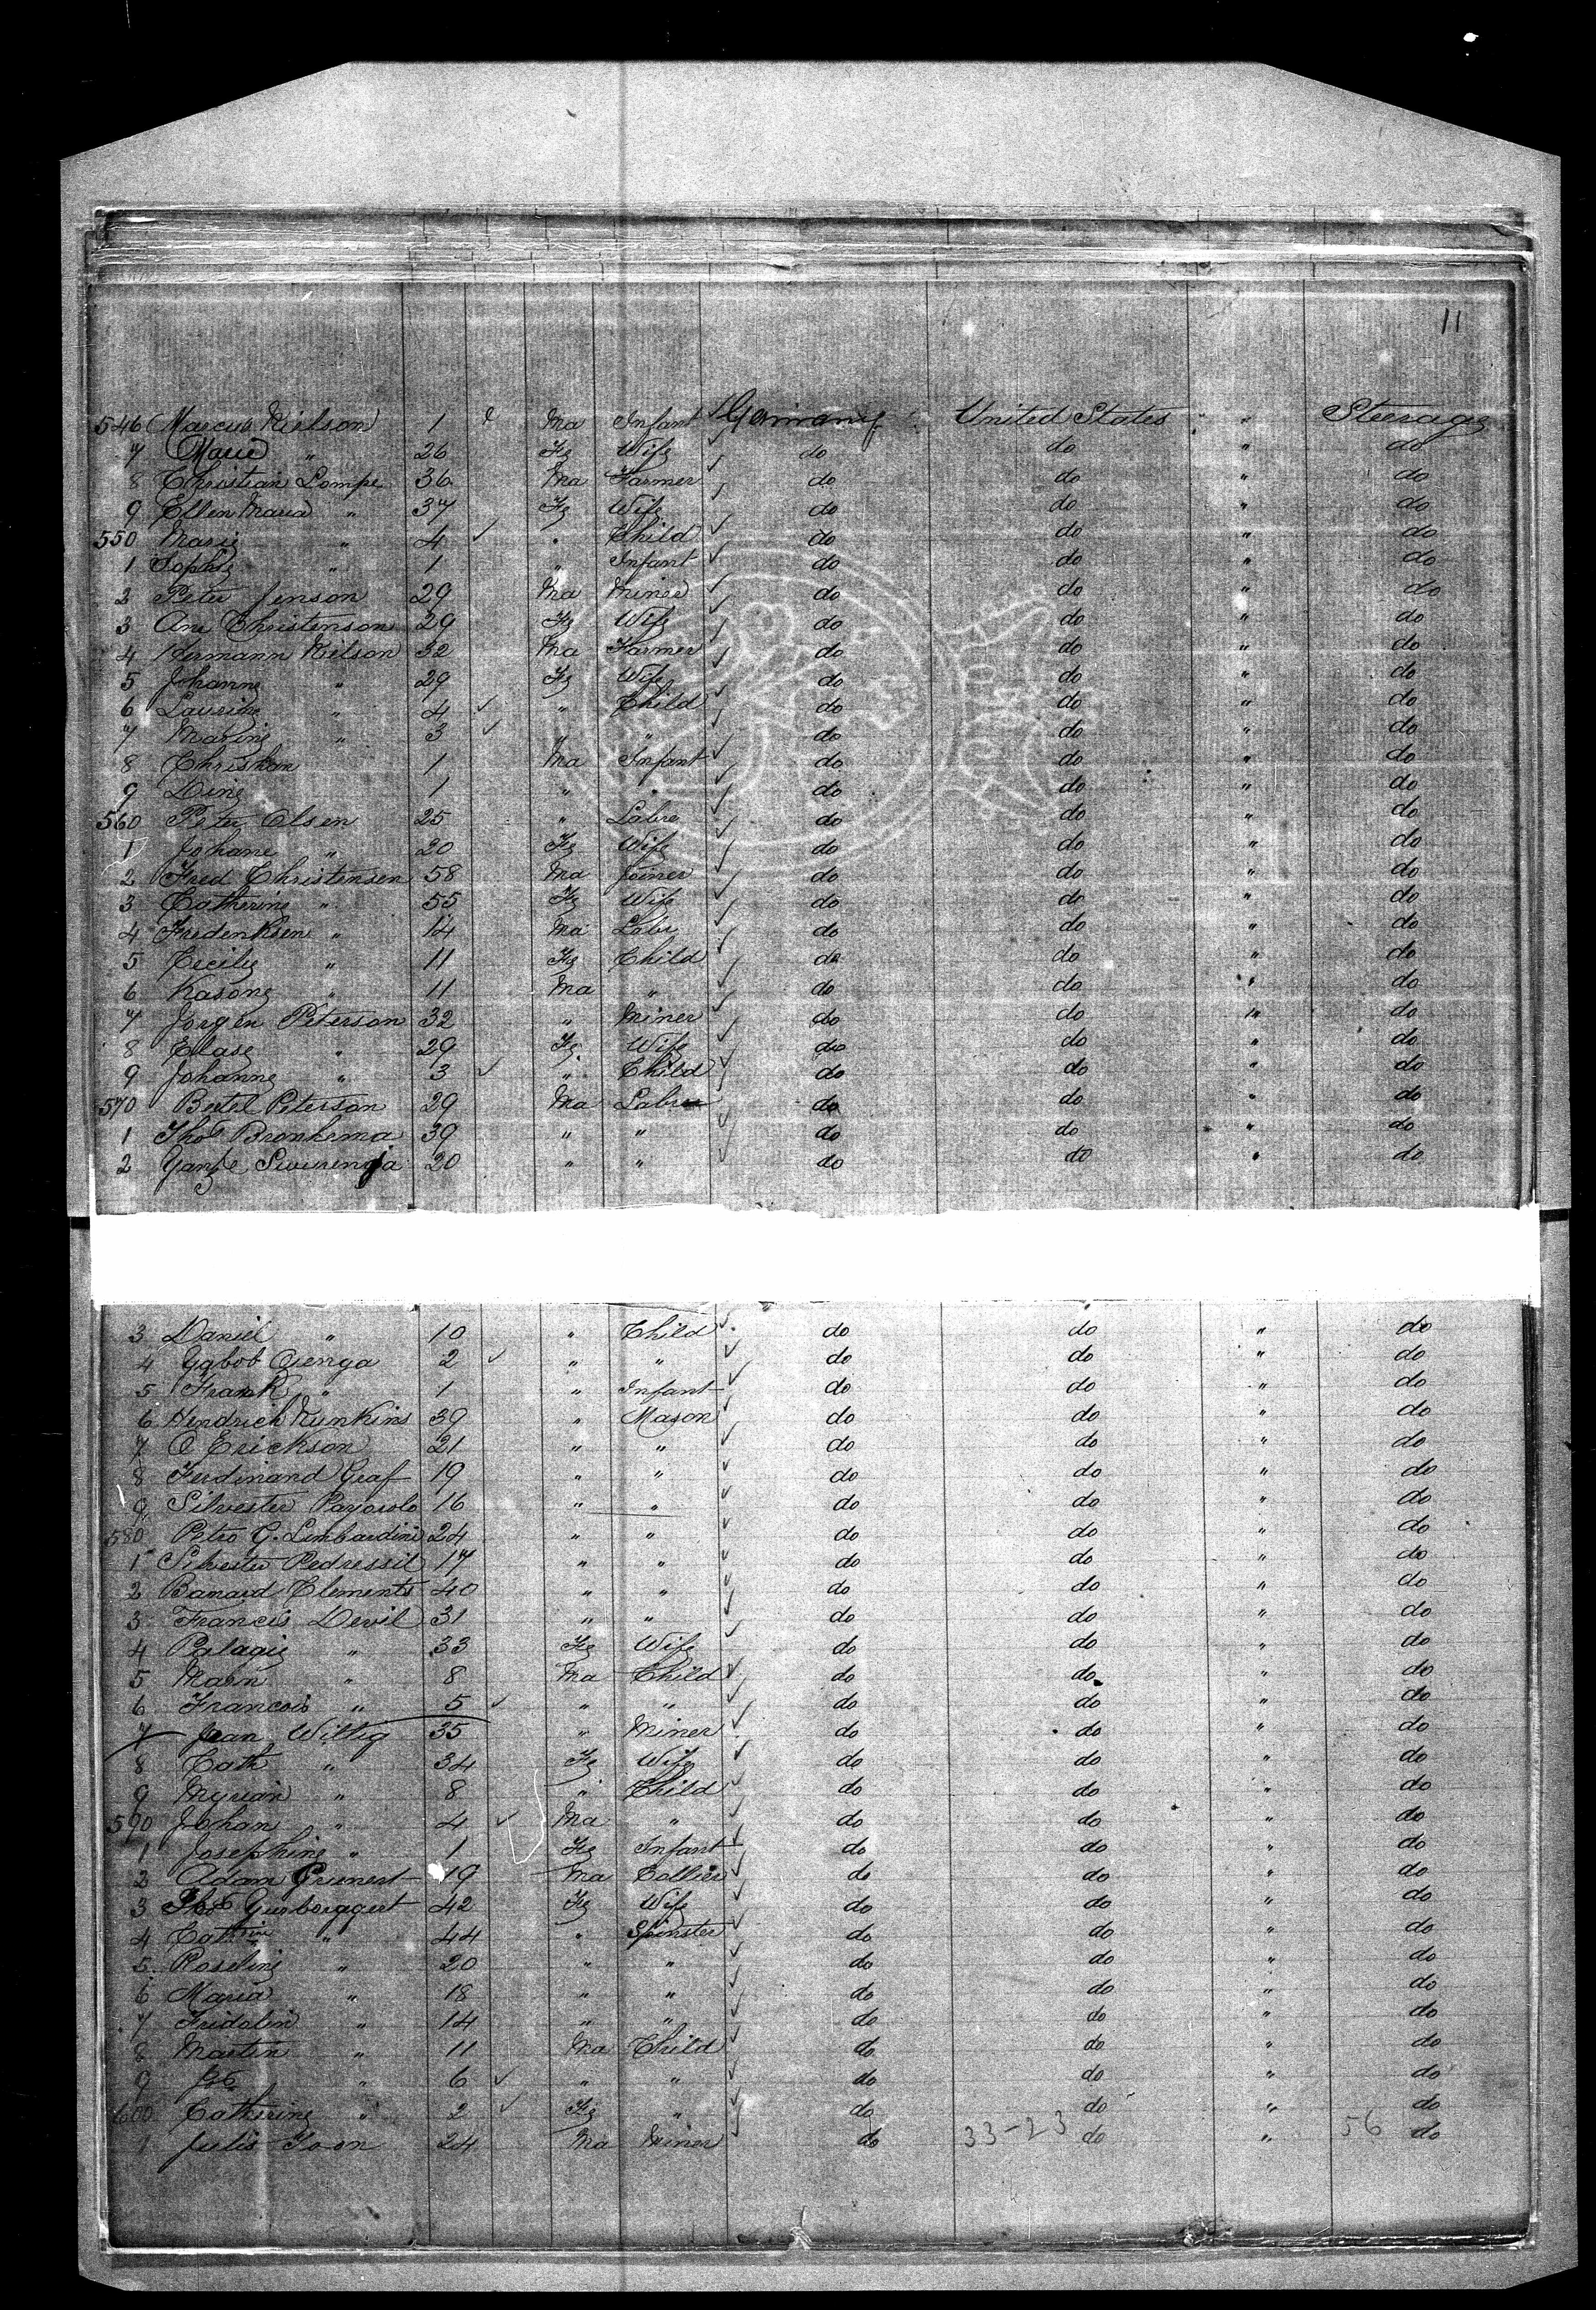 11
546 Marcus Nielson 1 Ma Infant Germany United States " Steerage
7 Marie " 26 Fe Wife do do " do
8 Christian Lompe 36 Ma Farmer do do " do
9 Ellen Maria " 37 Fe Wife do do " do
550 Marie " 4 " Child do do " do
1 Sophie " 1 " Infant do do " do
2 Peter Jenson 29 Ma Miner do do " do
3 Ane Christenson 29 Fe Wife do do " do
4 Hermann Nielson 32 Ma Farmer do do " do
5 Johanne " 29 Fe Wife do do " do
6 " 4 " Child do do " do
7 Marine " 3 " " do do " do
8 Christian 1 Ma Infant do do " do
9 Dine 1 " " do do " do
560 Peter Olsen 25 " Labre do do " do
1 Johane " 20 Fe Wife do do " do
2 Fred Christensen 58 Ma Joiner do do " do
3 Catherine " 55 Fe Wife do do " do
4 Frederiksen " 14 Ma Labr do do " do
5 Cecilie " 11 Fe Child do do " do
6 Rasone " 11 Ma " do do " do
7 Jorgen Peterson 32 " Miner do do " do
8 Elase " 29 Fe Wife do do " do
9 Johanne " 3 " Child do do " do
570 Bertel Peterson 29 Ma Labre do do " do
1 Thos Bronkema 39 " " do do " do
2 20 " " do do " do
3 Daniel " 10 " Child do do " do
4 2 " " do do " do
5 Frank " 1 " Infant do do " do
6 Hendrich Nunkins 39 " Mason do do " do
7 O Erickson 21 " " do do " do
8 Ferdinand Graf 19 " " do do " do
9 Silvester 16 " " do do " do
580 Petro G. Limbardini 24 " " do do " do
1 Silvester Pedressil 17 " " do do " do
2 Banard Clements 40 " " do do " do
3 Francis Devil 31 " " do do " do
4 Palagie " 33 Fe Wife do do " do
5 Marn " 8 Ma Child do do " do
6 Francois " 5 " " do do " do
7 Jean Wittig 35 " Miner do do " do
8 Cath " 34 Fe Wife do do " do
9 Myrian " 8 " Child do do " do
590 Johan " 4 Ma " do do " do
1 Josephine " 1 Fe Infant do do " do
2 Adam Grunert 19 Ma Collier do do " do
3 42 Fe Wife do do " do
4 " 44 " Spinster do do " do
5 Roseline " 20 " " do do " do
6 Maria " 18 " " do do " do
7 Fridolin " 14 " " do do " do
8 Martin " 11 Ma Child do do " do
9 " 6 " " do do " do
600 Catherine " 2 Fe " do do " do
1 Julis Toon 24 Ma Miner do 33-23 do " 56 do